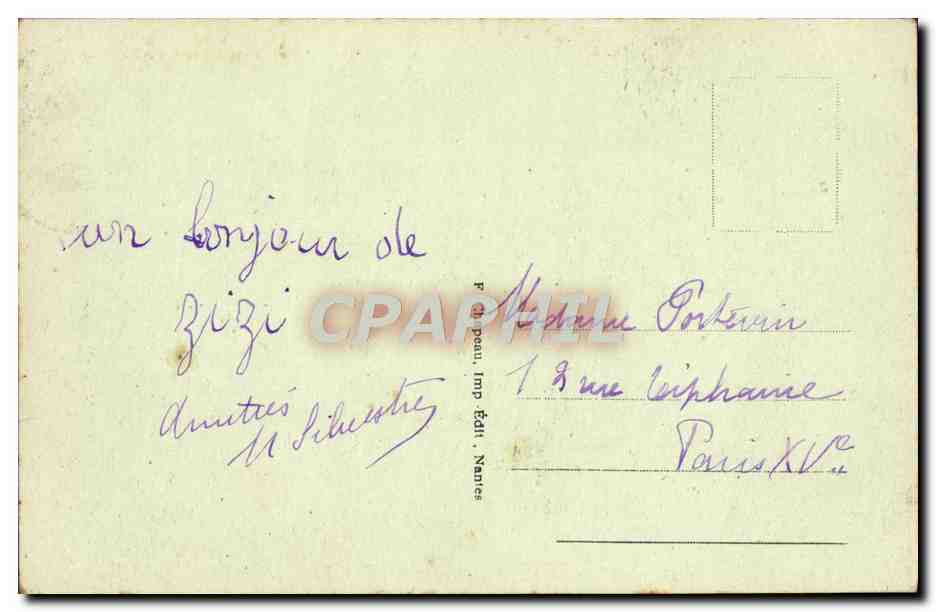 un bonjour de
zizi
Amitiés
M Silvestre
F. Chapeau, Imp.-Édit., Nantes
CPAPHIL
Madame Portevin
12 rue Tiphaine
Paris XVe